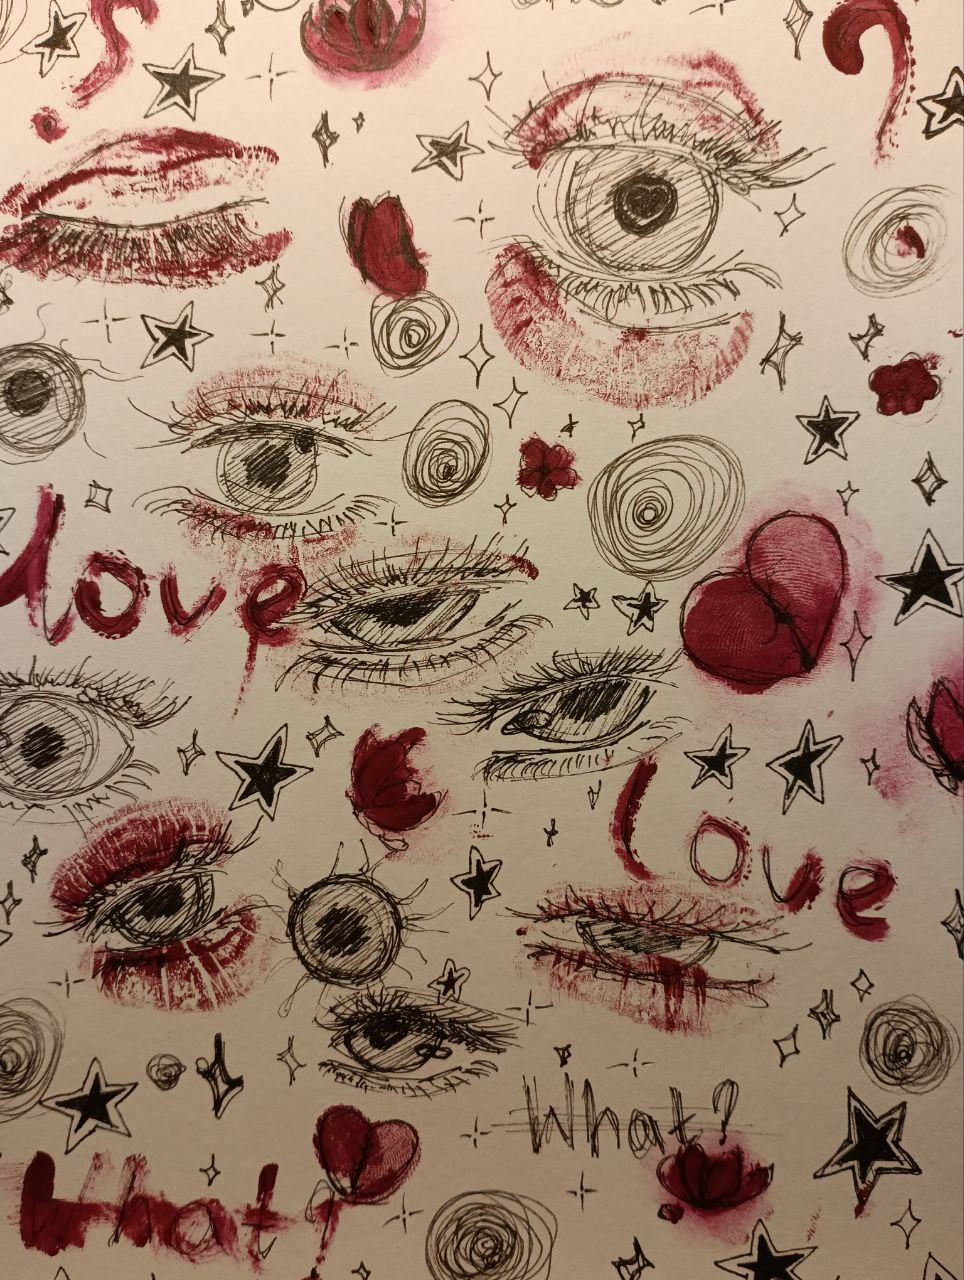 ?
?
love
Love
What?
What?